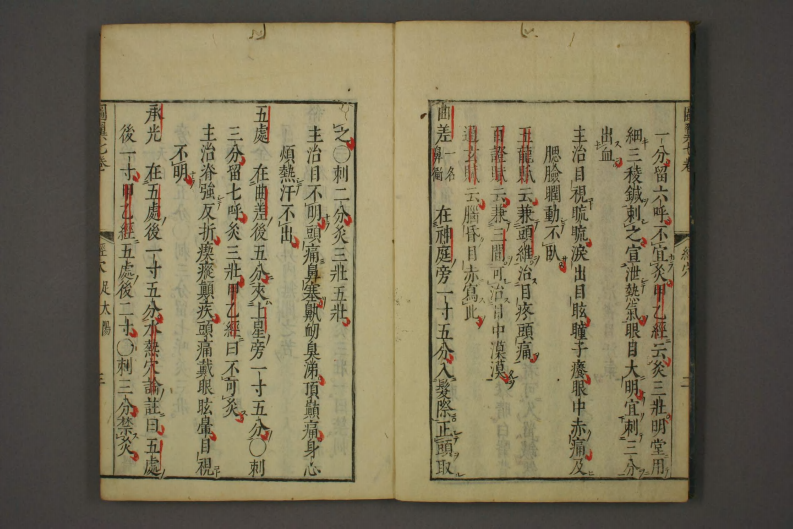 一分留六呼不宜灸甲乙經云灸三壯明堂用
細三稜鍼刺之宜泄熱氣眼目大明宜刺三分
出血
主治目視䀮䀮淚出目眩瞳子癢眼中赤痛及
腮臉瞤動不臥
玉龍賦云兼頭維治目疼頭痛
百證賦云兼三間可治目中漠漠
通玄賦云腦昏目赤瀉此
曲差 一名鼻衝 在神庭旁一寸五分入髮際正頭取
之〇刺二分灸三壯五壯
主治目不明頭痛鼻塞鼽衂臭涕頂巔痛身心
煩熱汗不出
五處 在曲差後五分夾上星旁一寸五分〇刺
三分留七呼灸三壯甲乙經曰不可灸
主治脊強反折瘈瘲顛疾頭痛戴眼眩暈目視
不明
承光 在五處後一寸五分水熱穴論註曰五處
後一寸甲乙經五處後二寸〇刺三分禁灸
圖翼七卷
經穴 足太陽